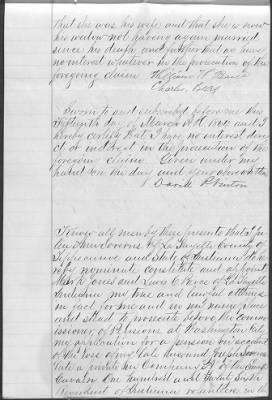 that she was his wife and that she is now
his widow not having again married
since his death and further that we have
no interest whatever in the prosecution of the
foregoing claim
Charles
Sworn to and subscribed before me this
Fifteenth day of March A.D. 1864 and I
hereby certify that I have no interest direct
or indirect in the prosecution of the
foregoing claim. Given under my
hand on the day and year aforesaid
David
Know all men by these presents that I
of La Fayette County of
Tippecanoe and State of Indiana do hereby
nominate constitute and appoint
Jones and Lewis C. Pence of La Fayette
Indiana my true and lawful attorneys
in fact for me and in my name place
and stead to prosecute before the Commissioner
of Pensions at Washington City
my application for a pension on account
of the loss of my late husband
late a private in Company of the
Cavalry One hundred and twenty sixth
Regiment of Indiana volunteers in the